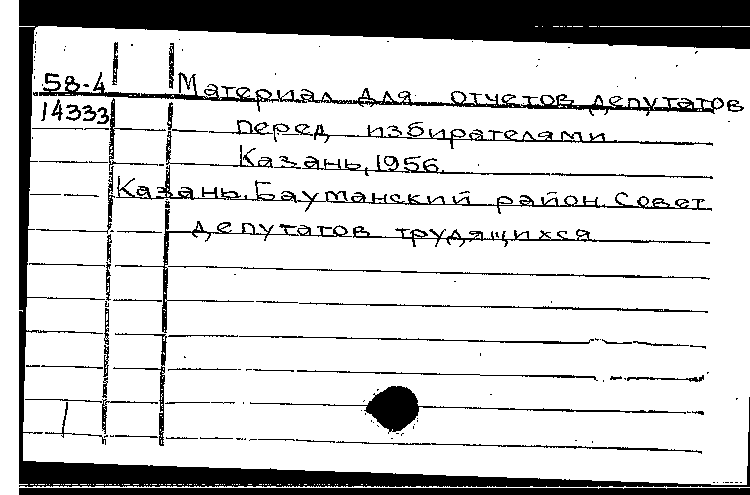 58-4 Материал для отчетов депутатов
14333 перед избирателями
Казань, 1956.
Казань. Бауманский район. Совет
депутатов трудящихся